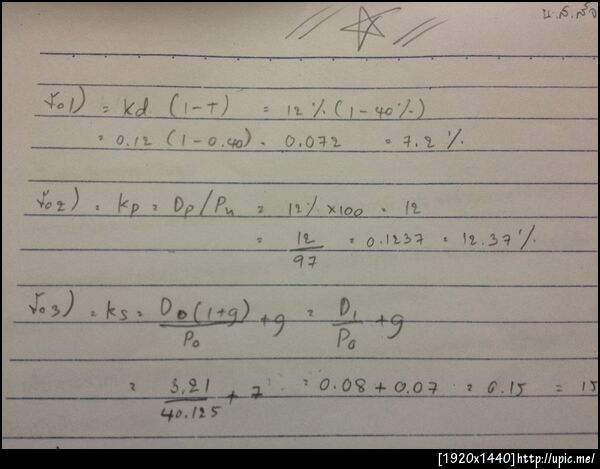 น.ส.
ข้อ1) = kd (1-T) = 12% (1-40%)
= 0.12 (1-0.40) = 0.072 = 7.2%
ข้อ2) = kp = Dp/Pn = 12% x100 = 12
= 12/97 = 0.1237 = 12.37%
ข้อ3) = ks = D0(1+g)/P0 + g = D1/P0 + g
= 3.21/40.125 + 7 = 0.08 + 0.07 = 0.15 = 15
[1920x1440]http://upic.me/